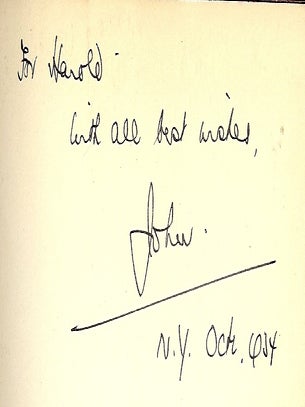 For Harold
with all best wishes,
John.
N.Y. Oct.